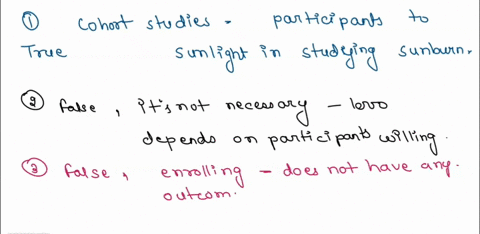 ① Cohort studies - participants to
True sunlight in studying sunburn.
② false, it's not necessary -
depends on participants willing.
③ false, enrolling - does not have any.
outcom.